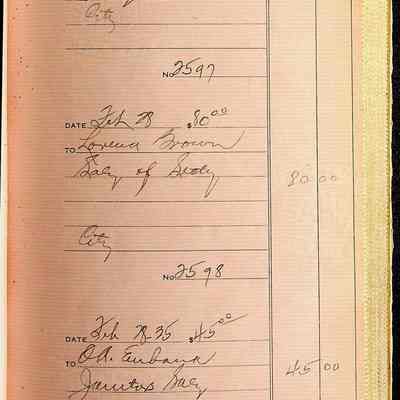 City
No 2597
DATE Feb 28 $80.00
TO Lorena Brown
Saly of Secty 80 00
City
No 2598
DATE Feb 28-35 $45.00
TO O.A. Eubank 45 00
Janitor Saly